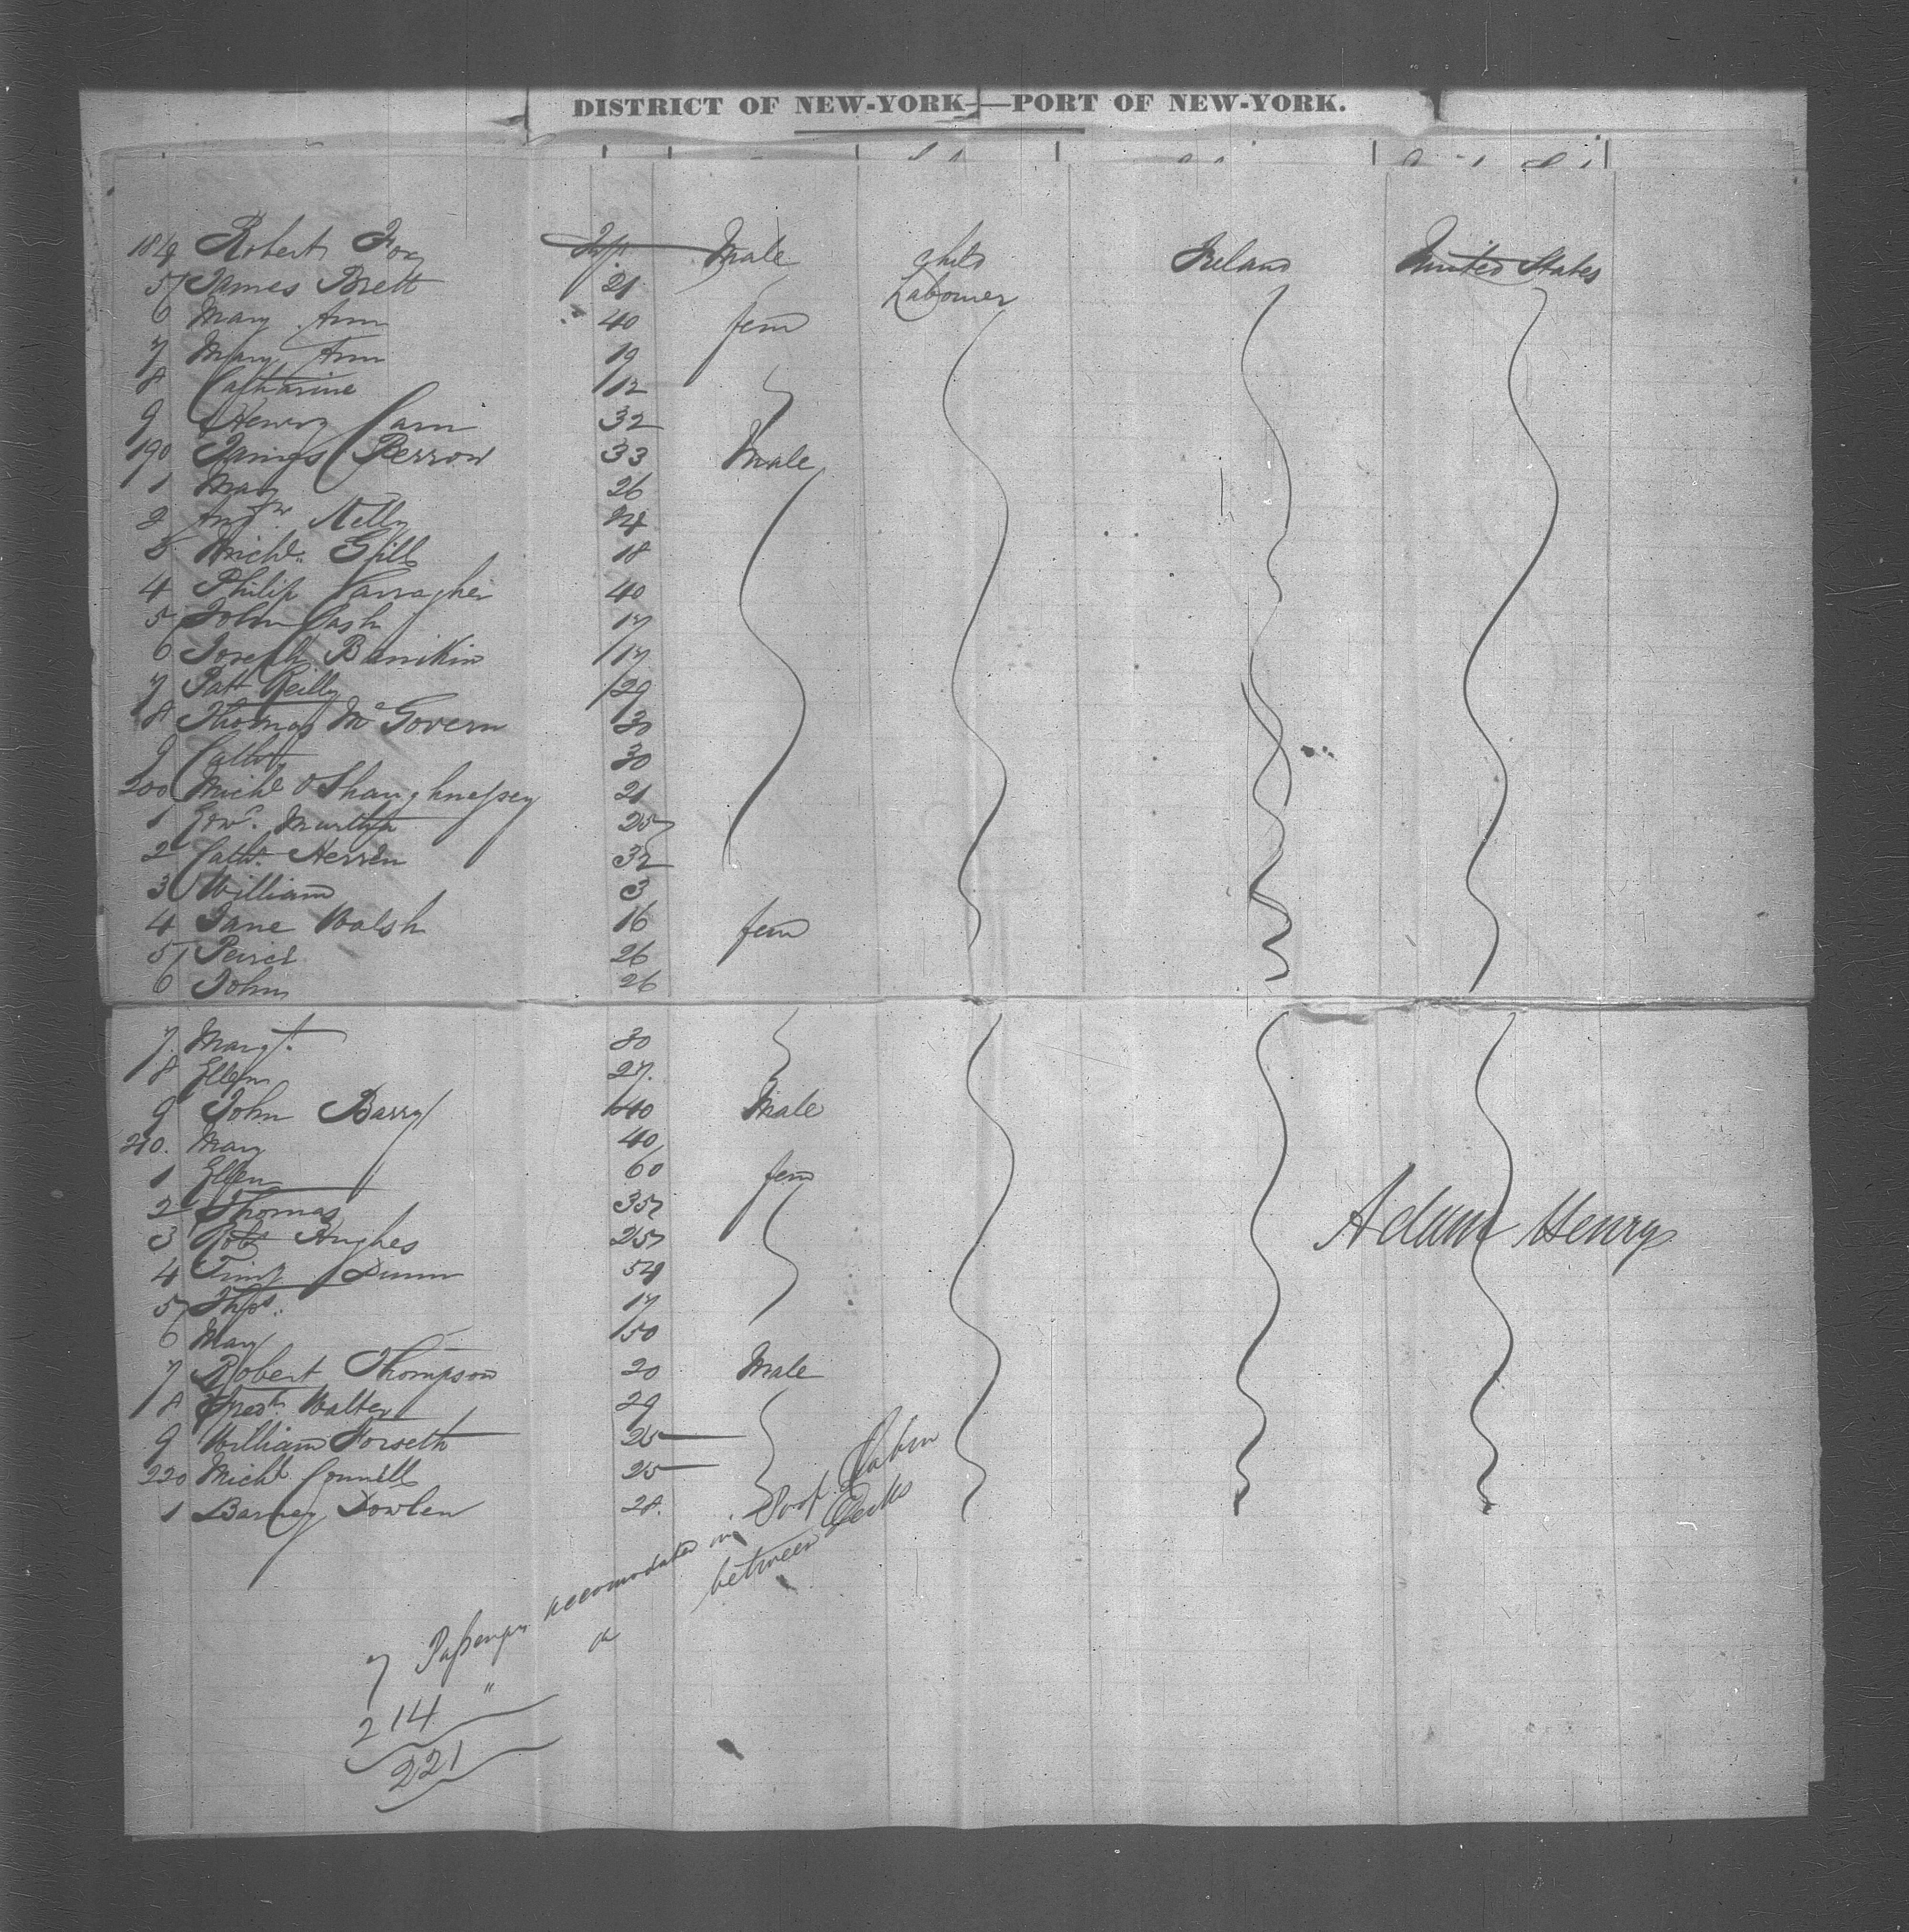 DISTRICT OF NEW-YORK—PORT OF NEW-YORK.
184 Robert Fox Inft Male child Ireland United States
5 James Brett 21 Labourer
6 Mary Ann 40 fem
7 Mary Ann 19
8 Catharine 12
9 Henry Carn 32
190 James Berrow 33 Male
1 Mary 26
2 Andw. Kelly 24
3 Michl. Gill 18
4 Philip Carragher 40
5 John Cash 17
6 Joseph Bannikin 17
7 Patt Reilly 29
8 Thomas McGovern 30
9 Cath 30
200 Michl O'Shaughnessey 21
1 Edwd. Murtha 25
2 Cath. Herren 32
3 William 3
4 Jane Walsh 16 fem
5 Peirce 26
6 John 26
7 Margt. 30
8 Ellen 27
9 John Barry 40 Male
210. Mary 40
1 Ellen 60 fem
2 Thomas 35
3 Robt Hughes 25
Adam Henry
4 Timy Dunn 54
5 Thos. 17
6 Mary 50
7 Robert Thompson 20 Male
8 Fredk. Walter 29
9 William Forseth 25
220 Michl Connell 25
1 Barney Dowlen 28.
7 Passengers accomodated in Poop Cabin
214 " on between Decks
221